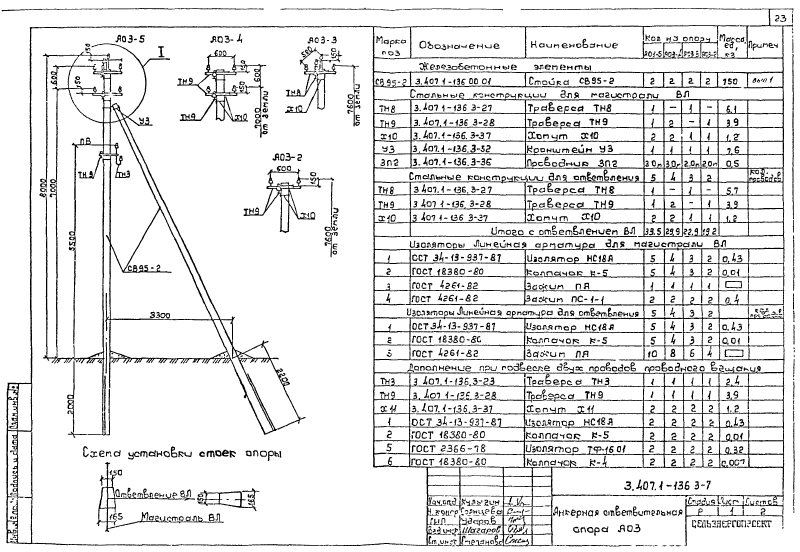 23
АОЗ-5
АОЗ-4
АОЗ-3
АОЗ-2
I
150
600
8000
7000
5500
2000
3300
2200
600
150
600
7000 от земли
ТН9
ТН9
Х10
500
150
7600 от земли
ТН8
Х10
600
150
7600 от земли
ТН9
Х10
УЗ
ПВ
ТН9
ТН3
СВ95-2
Схема установки стоек опоры
150
Ответвление ВЛ
165
Магистраль ВЛ
165
Марка поз.
Обозначение
Наименование
Кол на опору
АОЗ-5 АОЗ-4 АОЗ-3 АОЗ-2
Масса ед, кг
Примеч
Железобетонные элементы
СВ95-2 3.407.1-136 00 01 Стойка СВ95-2 2 2 2 2 750 вып 1
Стальные конструкции для магистрали ВЛ
ТН8 3.407.1-136 3-27 Траверса ТН8 1 – 1 – 6,1
ТН9 3.407.1-136 3-28 Траверса ТН9 1 2 – 1 3,9
Х10 3.407.1-136 3-37 Хомут Х10 2 2 1 1 1,2
УЗ 3.407.1-136.3-32 Кронштейн УЗ 1 1 1 1 7,6
ЗП2 3.407.1-136.3-36 Проводник ЗП2 3,0м 3,0м 2,0м 2,0м 0,5
Стальные конструкции для ответвления 5 4 3 2 кол. проводов
ТН8 3.407.1-136 3-27 Траверса ТН8 1 – 1 – 5,7
ТН9 3.407.1-136.3-28 Траверса ТН9 1 2 – 1 3,9
Х10 3 407.1-136 3-37 Хомут Х10 2 2 1 1 1,2
Итого с ответвлением ВЛ 33.5 29,9 22,9 19,2
Изоляторы Линейная арматура для магистрали ВЛ
1 ОСТ 34-13-937-87 Изолятор НС18А 5 4 3 2 0,43
2 ГОСТ 18380-80 Колпачок К-5 5 4 3 2 0,01
3 ГОСТ 4261-82 Зажим ПА 1 1 1 1
4 ГОСТ 4261-82 Зажим ПС-1-1 2 2 2 2 0,4
Изоляторы Линейная арматура для ответвления 5 4 3 2
1 ОСТ 34-13-937-87 Изолятор НС18А 5 4 3 2 0,43
2 ГОСТ 18380-80 Колпачок К-5 5 4 3 2 0,01
3 ГОСТ 4261-82 Зажим ПА 10 8 6 4
Дополнение при подвеске двух проводов проводного вещания
ТН3 3.407.1-136.3-23 Траверса ТН3 1 1 1 1 2,4
ТН9 3.407.1-136.3-28 Траверса ТН9 1 1 1 1 3,9
Х11 3.407.1-136.3-37 Хомут Х11 2 2 2 2 1.2
1 ОСТ 34-13-937-87 Изолятор НС18А 2 2 2 2 0,43
2 ГОСТ 18380-80 Колпачок К-5 2 2 2 2 0,01
5 ГОСТ 2366-78 Изолятор ТФ1601 2 2 2 2 0,32
6 ГОСТ 18380-80 Колпачок К-4 2 2 2 2 0,007
3.407.1-136 3-7
Нач.отд Кулыгин
Н.контр Солнцева
ГИП Ударов
Вед.инж Шагаров
Ст.инж
Анкерная ответвительная опора АОЗ
Стадия Лист Листов
Р 1 2
СЕЛЬЭНЕРГОПРОЕКТ
Подпись и дата
Взам.инв.№